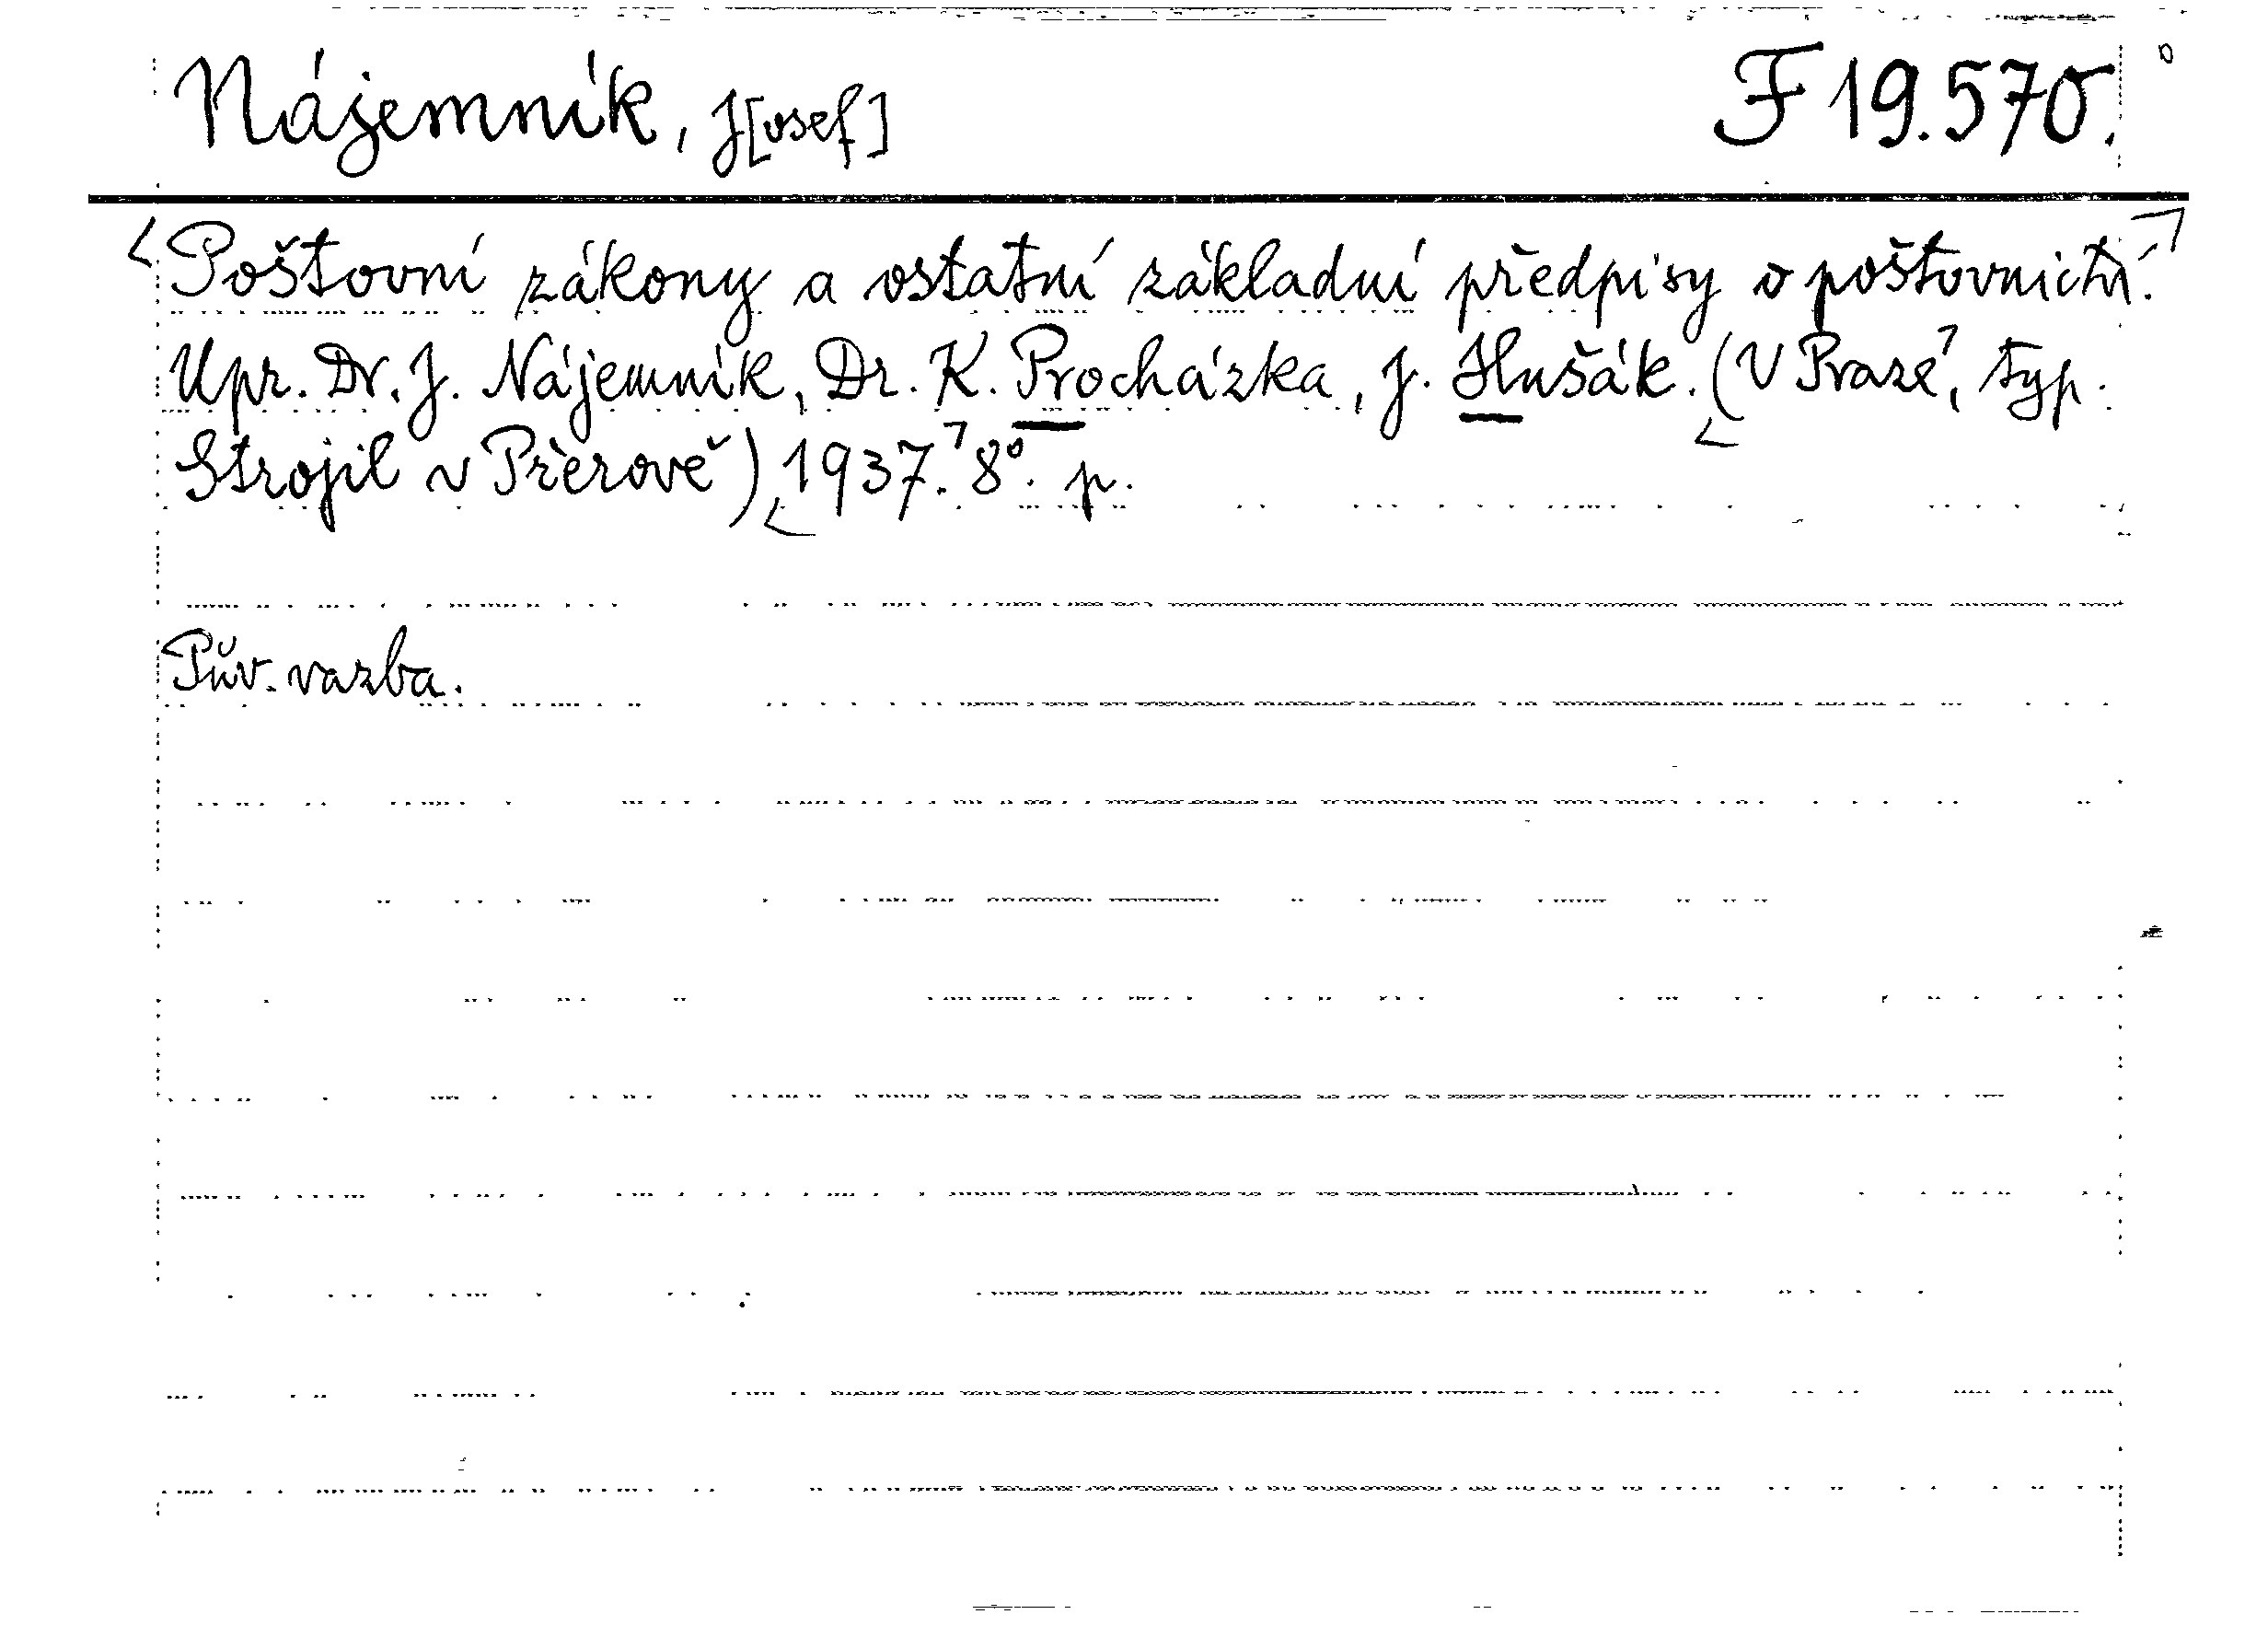 Nájemník, J[osef] F 19.570.
Poštovní zákony a ostatní základní předpisy o poštovnictví.
Upr. Dr. J. Nájemník, Dr. K. Procházka, J. Hušák. (V Praze, typ.
Strojil v Přerově) 1937. 8°. p.
Pův. vazba.